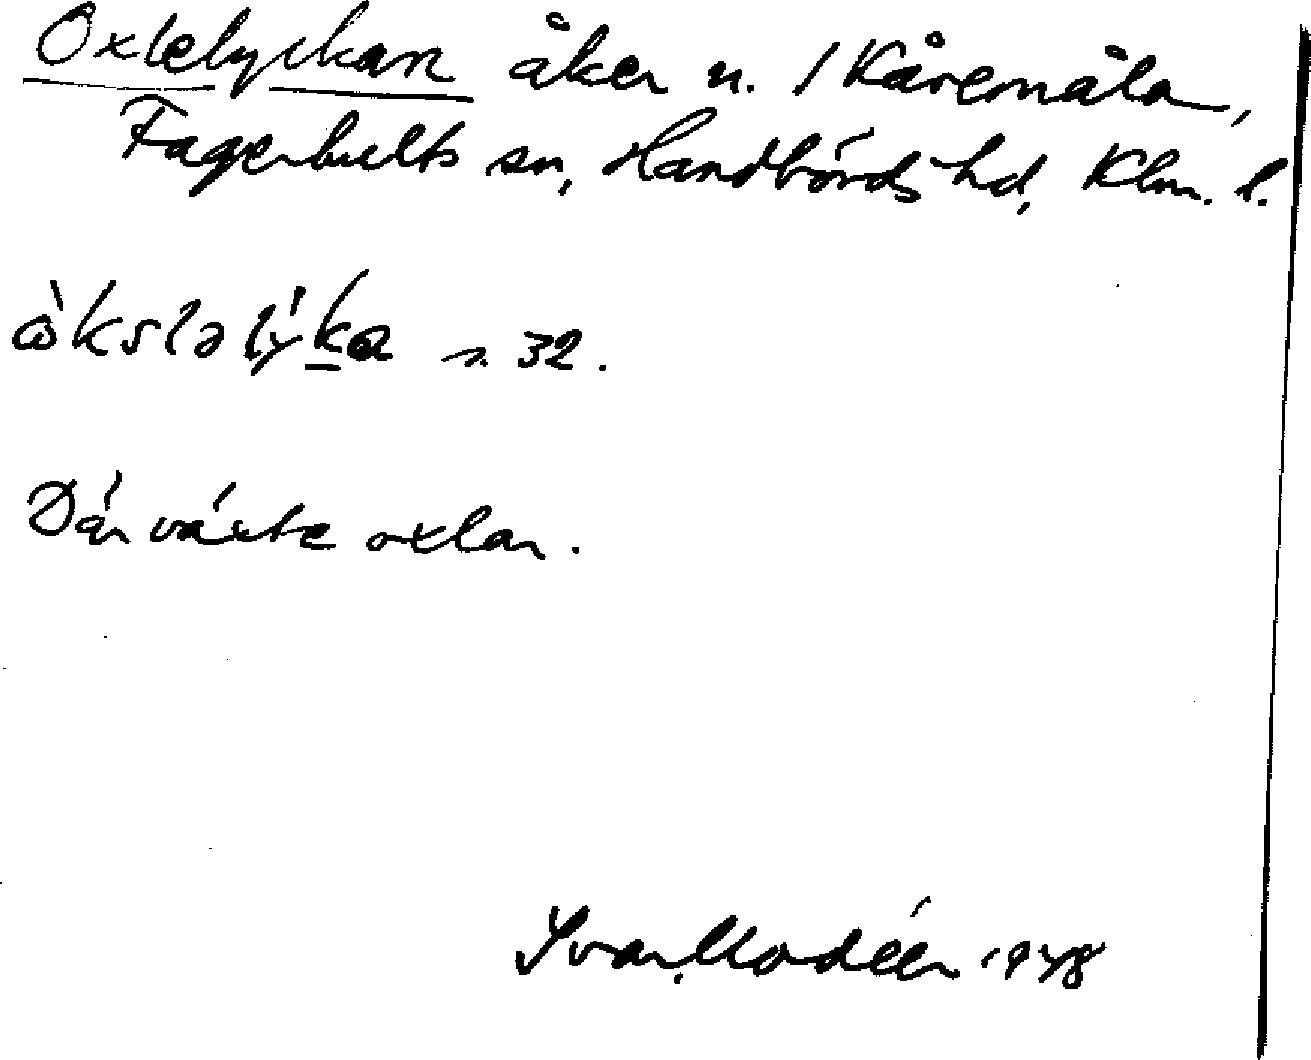 Oxlelyckan åker n. 1 Kåremåla,
Fagerhults sn, Handbörds hd, Klm. l.
ò̀kslǝlý́ka n. 32.
Där växte oxlar.
Ivar Modéer 1948